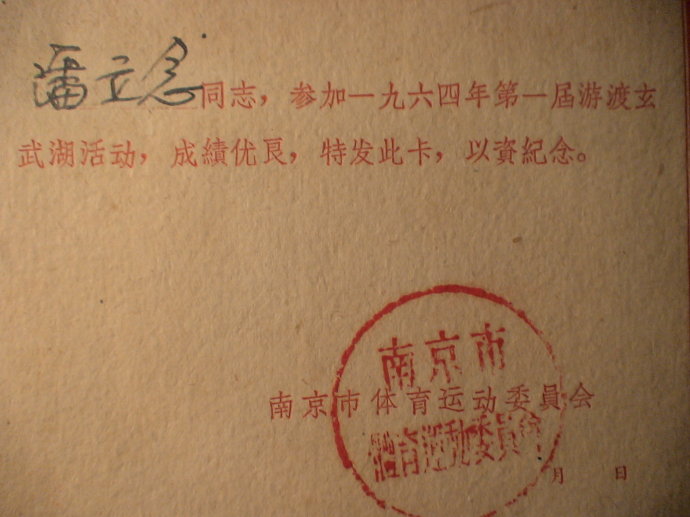 潘立念同志，参加一九六四年第一届游渡玄
武湖活动，成績优良，特发此卡，以資紀念。
南京市
南京市体育运动委員会
體育運動委員會
月 日